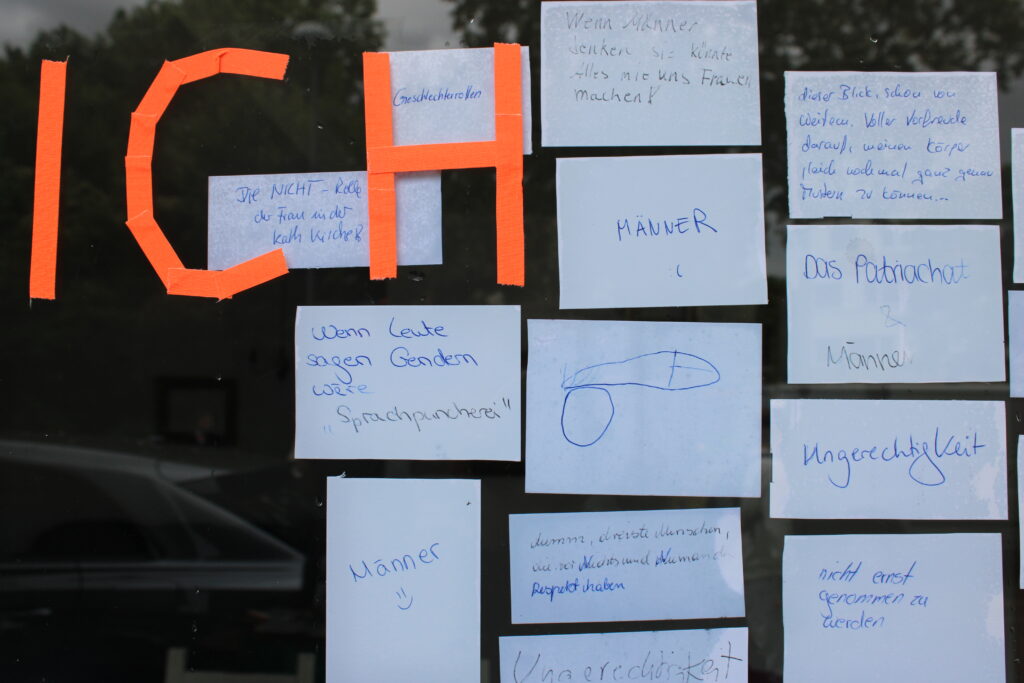 ICH
Geschlechterrollen
Die NICHT-Rolle
der Frau in der
kath Kirche
Wenn Männer
denken sie könnte
Alles mit uns Frauen
machen!
dieser Blick, schon von
weitem. Voller Vorfreude
darauf, meinen Körper
gleich nochmal ganz genau
mustern zu können...
MÄNNER
:(
Das Patriachat
&
Männer
Wenn Leute
sagen Gendern
wäre
"Sprachpuncherei"
Ungerechtigkeit
Männer
:)
dumm, dreiste Menschen,
die vor Nichts und Niemanden
Respekt haben
nicht ernst
genommen zu
werden
Ungerechtigkeit